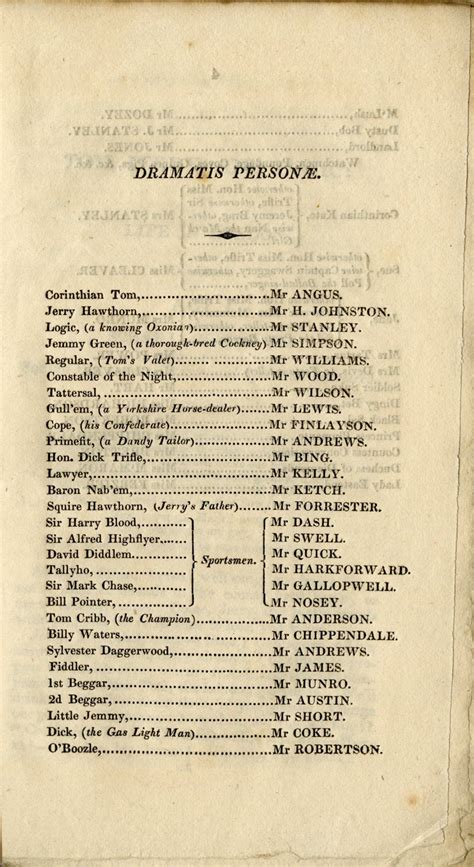 DRAMATIS PERSONÆ.
Corinthian Tom,..............................Mr ANGUS.
Jerry Hawthorn,..............................Mr H. JOHNSTON.
Logic, (a knowing Oxonian)...................Mr STANLEY.
Jemmy Green, (a thorough-bred Cockney) Mr SIMPSON.
Regular, (Tom's Valet).......................Mr WILLIAMS.
Constable of the Night,......................Mr WOOD.
Tattersal,...................................Mr WILSON.
Gull'em, (a Yorkshire Horse-dealer)..........Mr LEWIS.
Cope, (his Confederate)......................Mr FINLAYSON.
Primefit, (a Dandy Tailor)...................Mr ANDREWS.
Hon. Dick Trifle,............................Mr BING.
Lawyer,......................................Mr KELLY.
Baron Nab'em,................................Mr KETCH.
Squire Hawthorn, (Jerry's Father)............Mr FORRESTER.
Sir Harry Blood,............ Mr DASH.
Sir Alfred Highflyer,....... Mr SWELL.
David Diddlem............... Mr QUICK.
Sportsmen.
Tallyho,.................... Mr HARKFORWARD.
Sir Mark Chase,............. Mr GALLOPWELL.
Bill Pointer,............... Mr NOSEY.
Tom Cribb, (the Champion)....................Mr ANDERSON.
Billy Waters,................................Mr CHIPPENDALE.
Sylvester Daggerwood,........................Mr ANDREWS.
Fiddler,.....................................Mr JAMES.
1st Beggar,..................................Mr MUNRO.
2d Beggar,...................................Mr AUSTIN.
Little Jemmy,................................Mr SHORT.
Dick, (the Gas Light Man)....................Mr COKE.
O'Boozle,....................................Mr ROBERTSON.